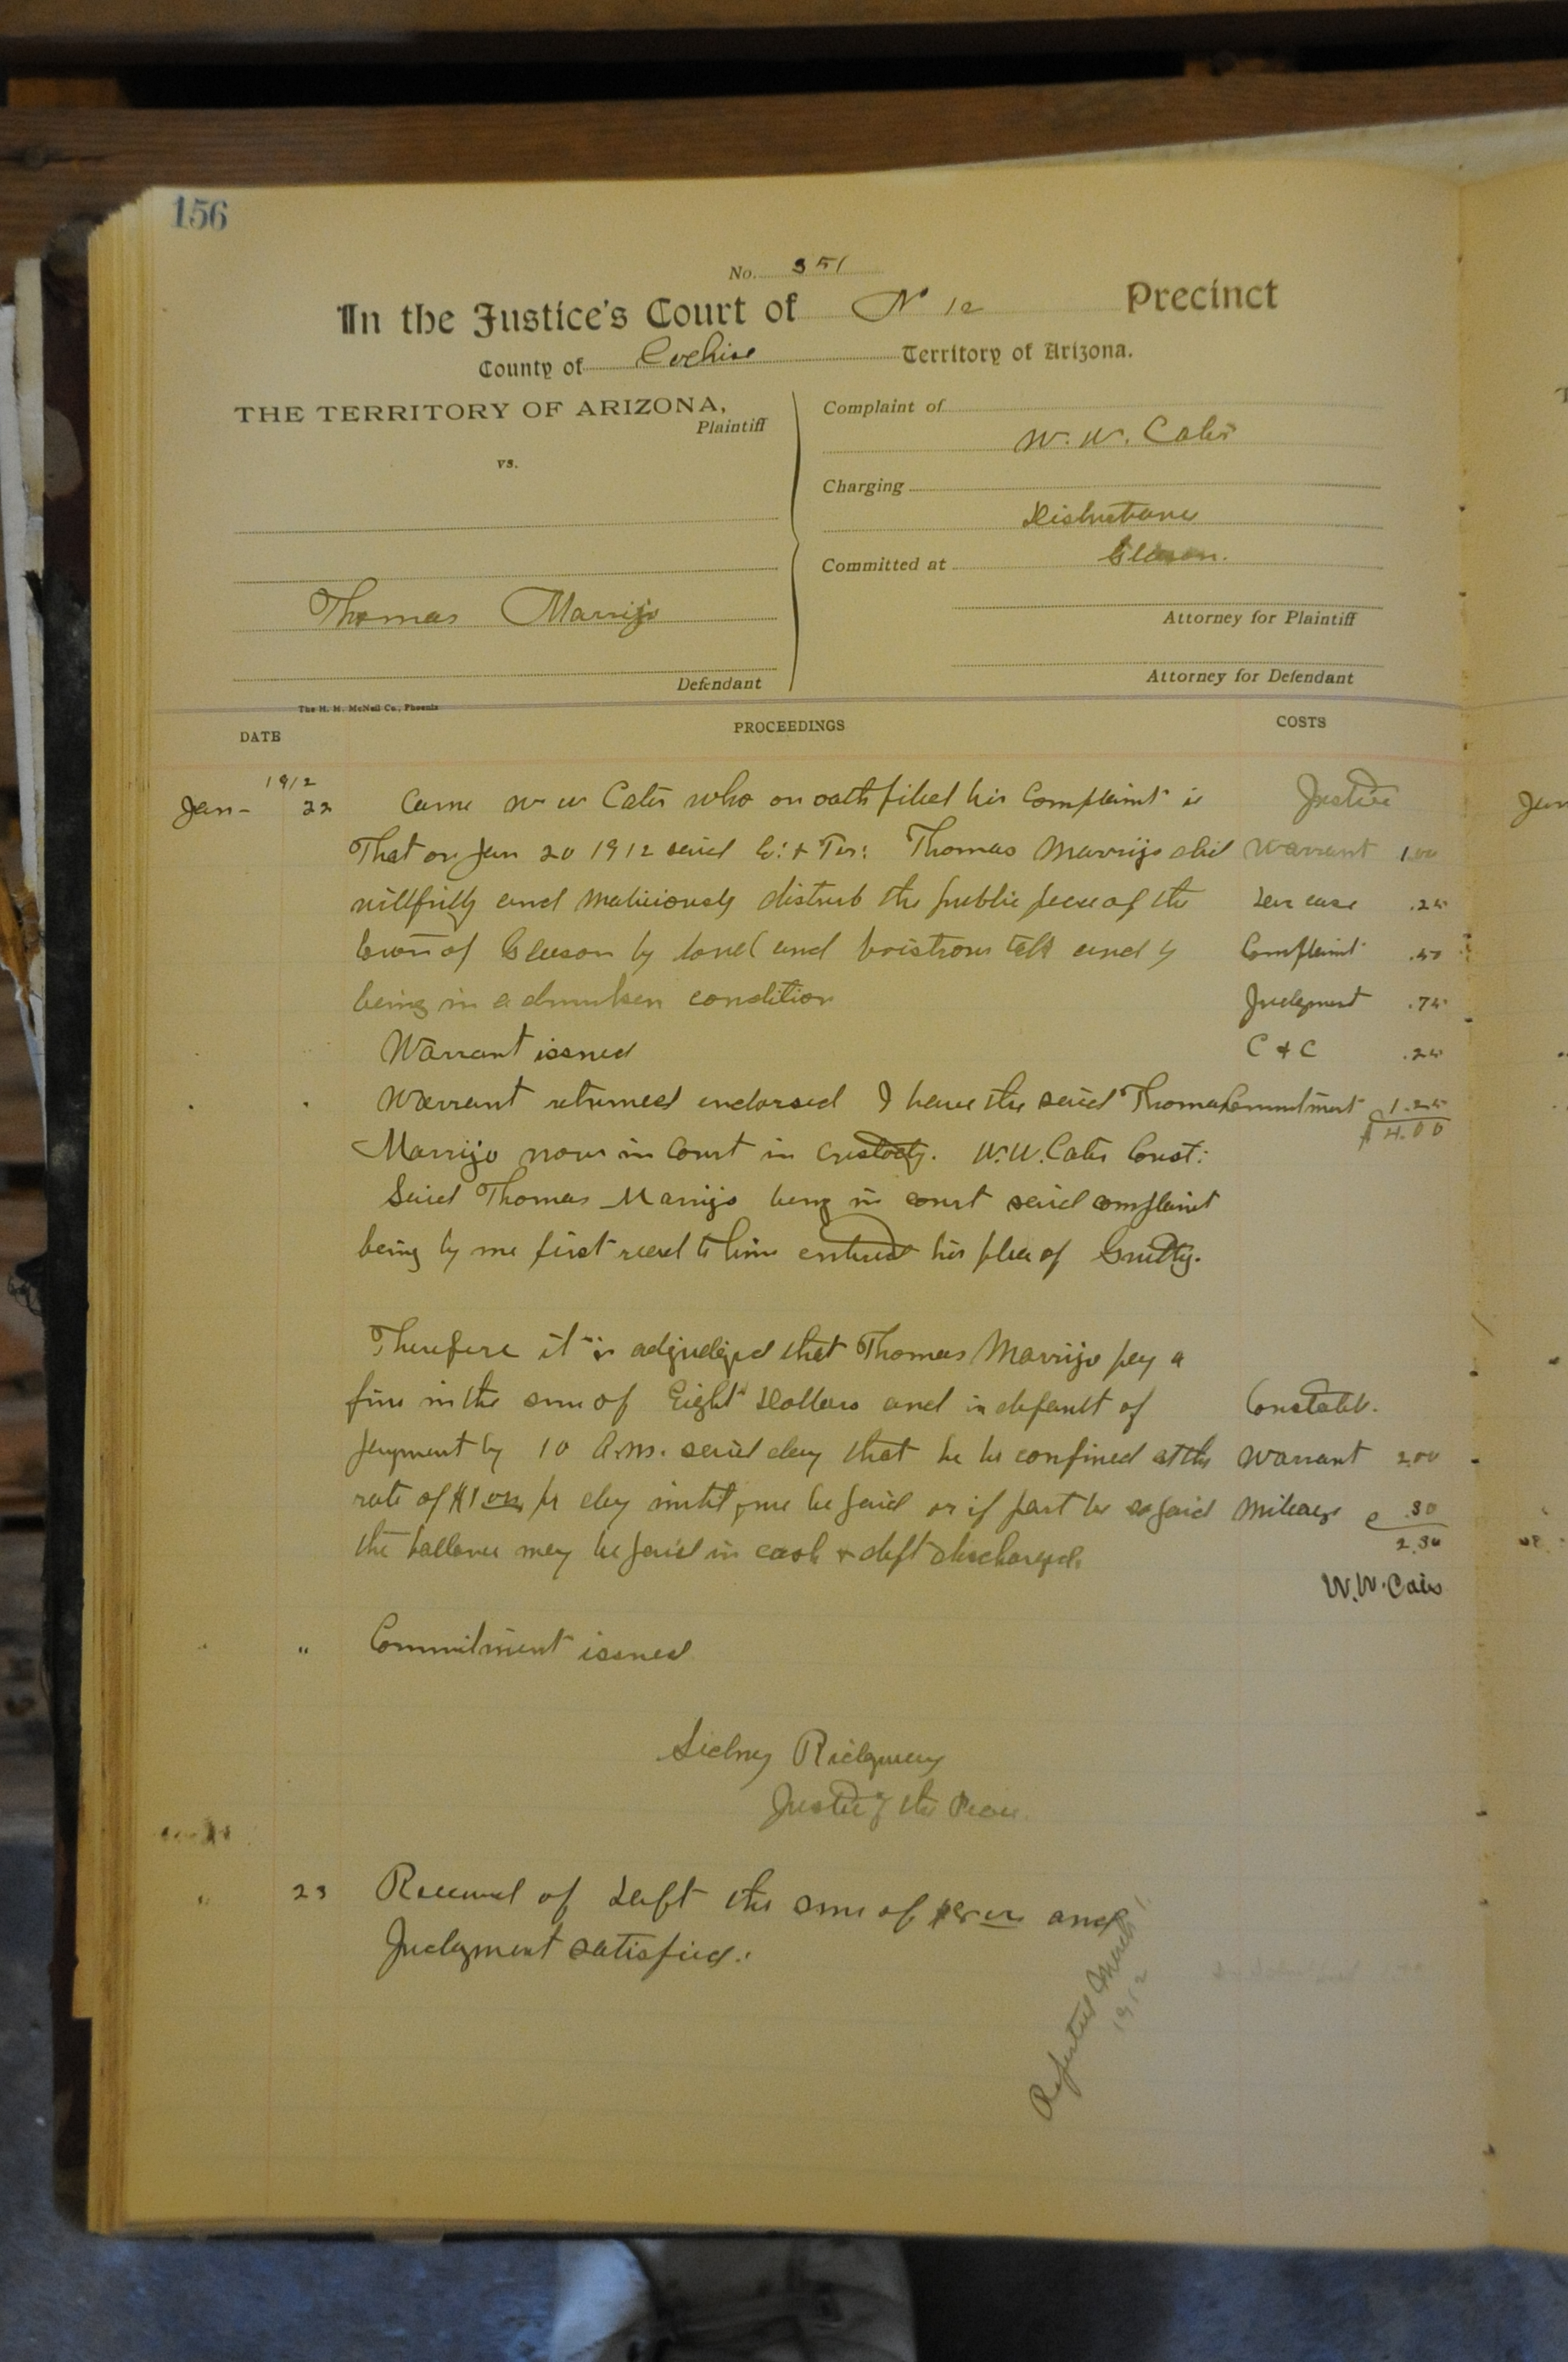 156
No. 351
In the Justice's Court of No 12 Precinct
County of Cochise Territory of Arizona.
THE TERRITORY OF ARIZONA,
Plaintiff
vs.
Thomas Marrijo
Defendant
Complaint of
W. W. Cates
Charging
Disturbance
Committed at Gleeson.
Attorney for Plaintiff
Attorney for Defendant
The H. H. McNeil Co., Phoenix
DATE PROCEEDINGS COSTS
1912
Jan- 22 Came W W Cates who on oath filed his Complaint is Justice
That on Jan 20 1912 said C. & Ter: Thomas Marrijo did Warrant 1.00
willfully and maliciously disturb the public peace of the .25
town of Gleeson by loud and boistrous talk and by Complaint .50
being in a drunken condition Judgment .75
Warrant issued C & C .25
Warrant returned endorsed I have the said Thomas Commitment 1.25
$4.00
Marrijo now in Court in custody. W.W. Cates Const:
Said Thomas Marrijo being in court said complaint
being by me first read to him entered his plea of Guilty.
Therefore it is adjudged that Thomas Marrijo pay a
fine in the sum of Eight Dollars and in default of Constable.
payment by 10 A.M. said day that he be confined at the Warrant 2.00
rate of $1.00 pr day until fine be paid or if part be so paid Mileage .30
2.30
the ballance may be paid in cash & deft discharged.
W.W. Cates
" Commitment issued
Sidney Ridgway
Justice of the Peace
" 23 Received of Deft the sum of $8.00 and
Judgment satisfied.
Reported March 1
1912